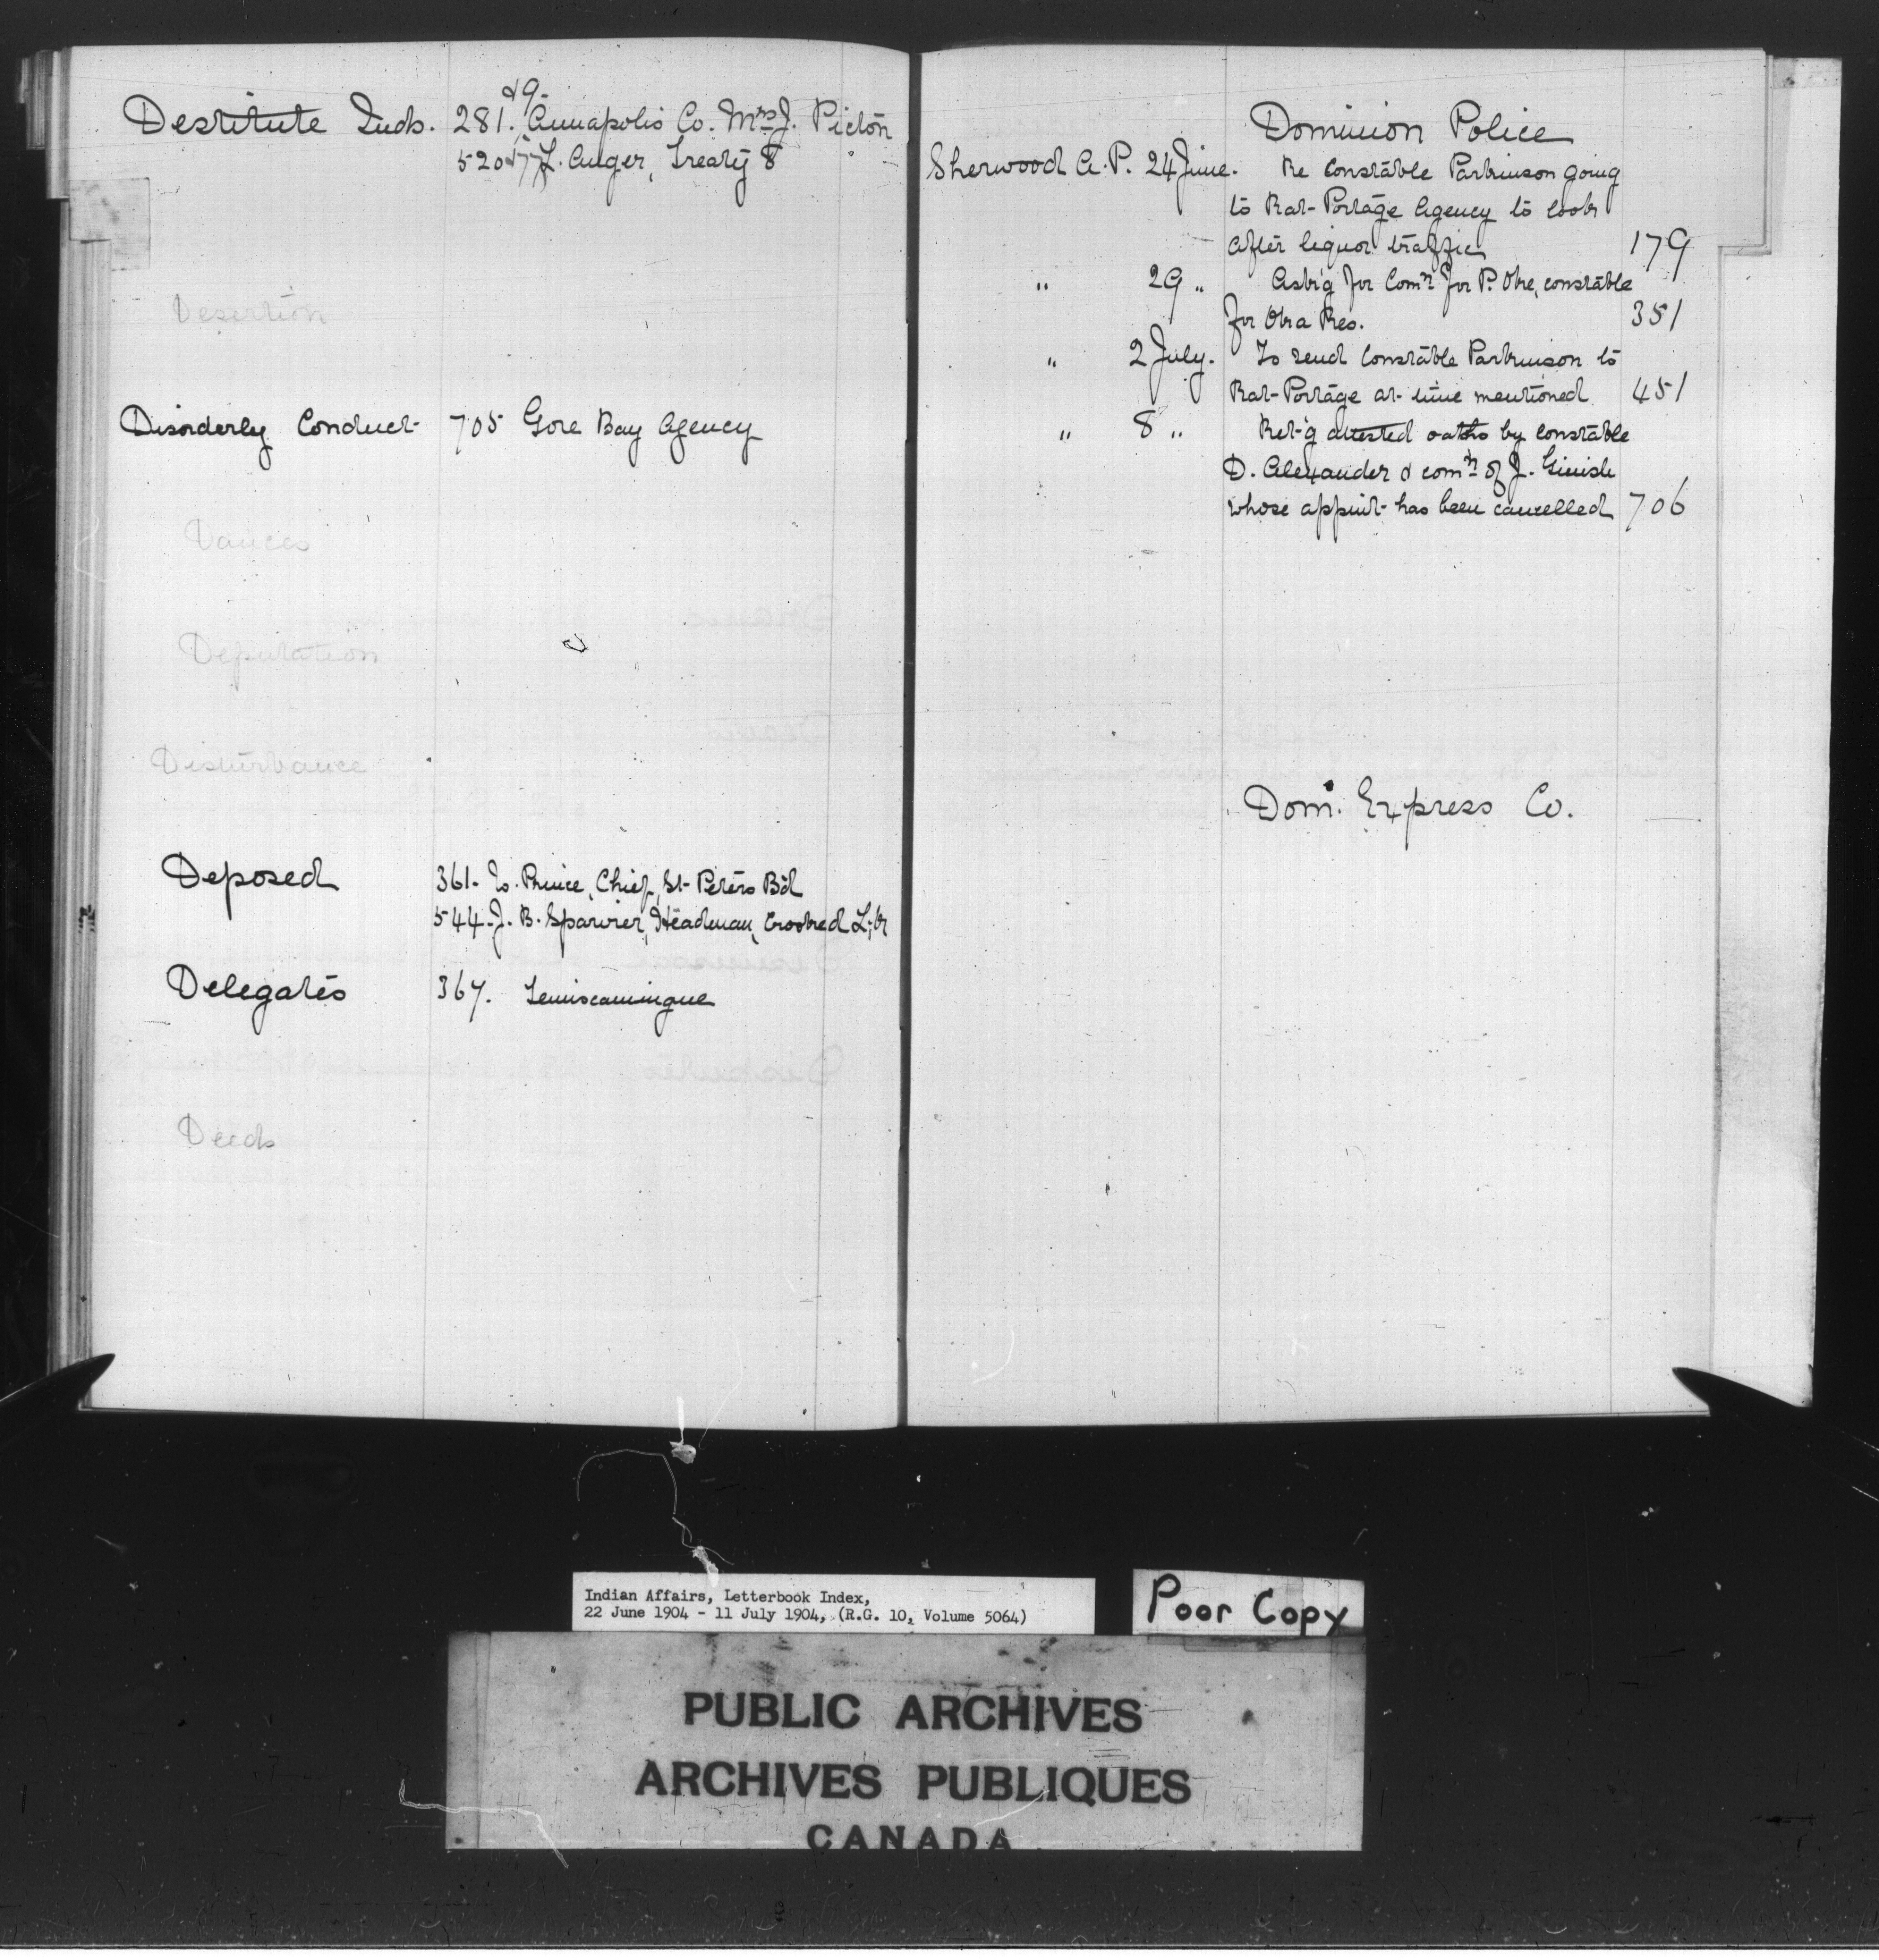 & 9-
Destitute Inds. 281. Annapolis Co. Mrs J. Picton
520 & 77 L. Auger, Treaty 8
Desertion
Disorderly Conduct 705 Gore Bay Agency
Dances
Deputation
Disturbance
Deposed 361- Prince, Chief, St- Peters Bd
544- J. B. Sparvier, Headman, Crooked L.
Delegates 367. Temiscamingue
Deeds
Dominion Police
Sherwood A. P. 24 June. Re Constable Parkinson going
to Rat-Portage Agency to look
after liquor traffic 179
" 29 " Ask'g for Comn for P. Obe, constable
for Res. 351
" 2 July. To send Constable Parkinson to
Rat-Portage at- time mentioned 451
" 8 " Ret-'g attested oaths by constable
D. Alexander & comn of J. Ginish
whose appmt- has been cancelled 706
Dom. Express Co.
Indian Affairs, Letterbook Index,
22 June 1904 - 11 July 1904, (R.G. 10, Volume 5064)
Poor Copy
PUBLIC ARCHIVES
ARCHIVES PUBLIQUES
CANADA